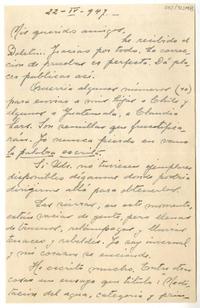 22-IV-947.
Mis queridos amigos:
he recibido el
Boletín. Gracias por todo. La correc-
ción de pruebas es perfecta. Da pla-
cer publicar así.
Querría algunos números (10)
para enviar a mis hijas a Chile y
algunos a Guatemala, a Claudia
Lars. Son semillas que fructifica-
rán. Yo nunca pierdo en vano
la palabra escrita.
Si Uds. no tuviesen ejemplares
disponibles díganme donde podría
dirigirme allá para obtenerlos.
Las sierras, en este momento,
están vacías de gente, pero llenas
de truenos, relámpagos y lluvias
tenaces y rebeldes. Yo soy invernal
y mi corazón se enciende.
He escrito mucho. Entre otras
cosas un ensayo que titulo: Made-
racion del agua, categoría y